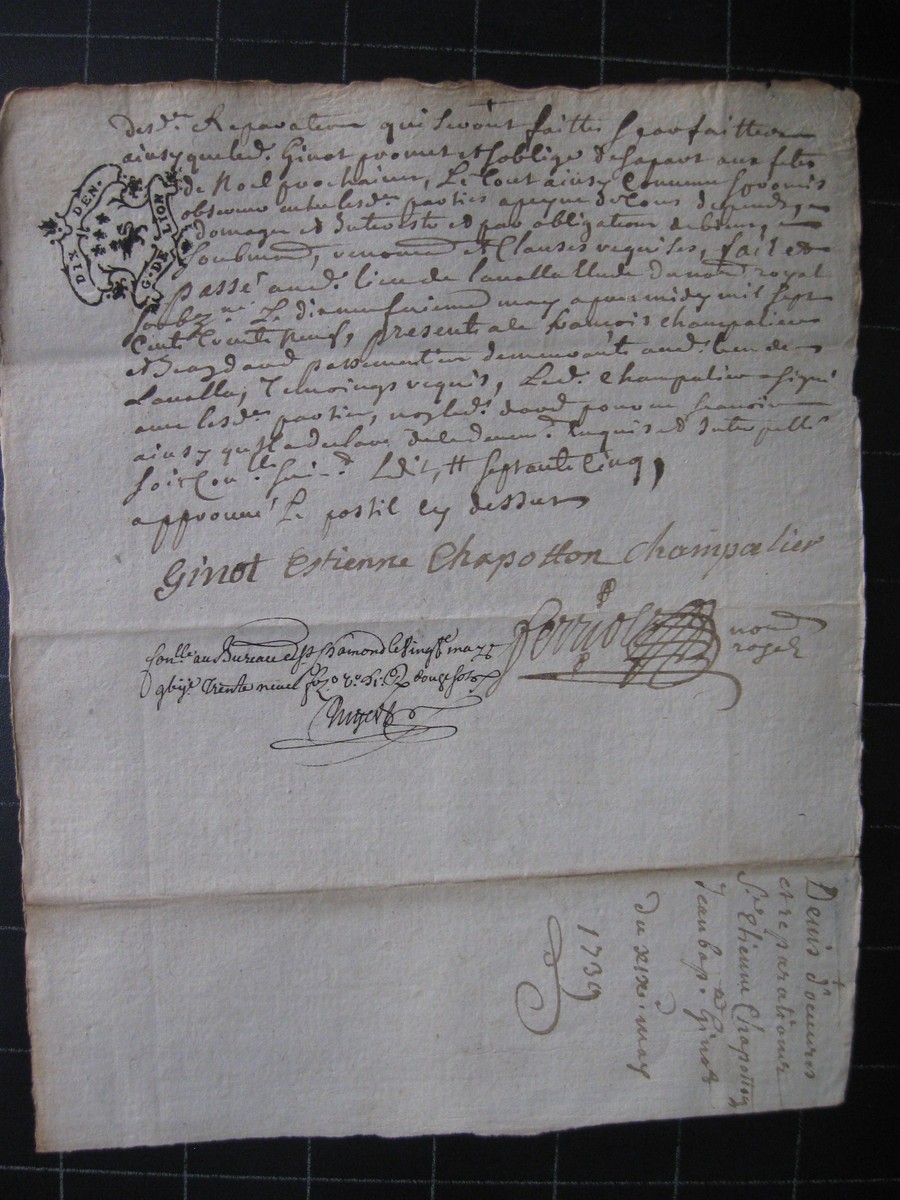 desd. Reparations qui seront faittes & parfaittes
ainsy que led. Ginot promet et soblige de sa part aux fetes
de Noel prochaines, Le tout ainsy convenu & promis
observer entre lesd. parties a peyne de tous depends,
domages et Interests et par obligation de biens,
soubmis, renoncé et Clauses requises, fait et
Passé aud. lieu de Lavalla Etude du not. royal
soubz.né Le dixneufvieme may apres midy mil sept
Cents trente neuf, presents a ce françois champalier
et passementier demeurants aud. lieu de
Lavalla, Temoings requis, Led. Champalier a signé
avec lesd. parties, non led.
ainsy qu'il a declaré de ce enquis et Interpellé
soit Con.lle led. Edit, # septante cinq,
approuvé Le postil cy dessus
Ginot Estienne Chapotton Champalier
Ferriol not. royal
Con.llé au Bureau de St. Chamond le vingt.e may
trente neuf Reçu douze sols
DIX DEN.
G. DE LION
Devis d'oeuvres
et reparations
Sr. Etienne Chapotton
a
Jean bap. Ginot
du xix. may
1739